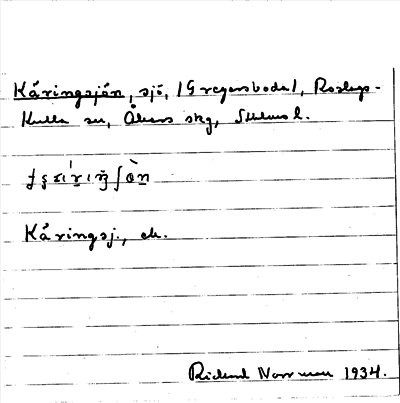 Käringsjön, sjö, (Gregersboda), Roslags-
Kulla sn, Åkers skg, Sthlms l.
Käringsj., ek.
Rickard Norrman 1934.